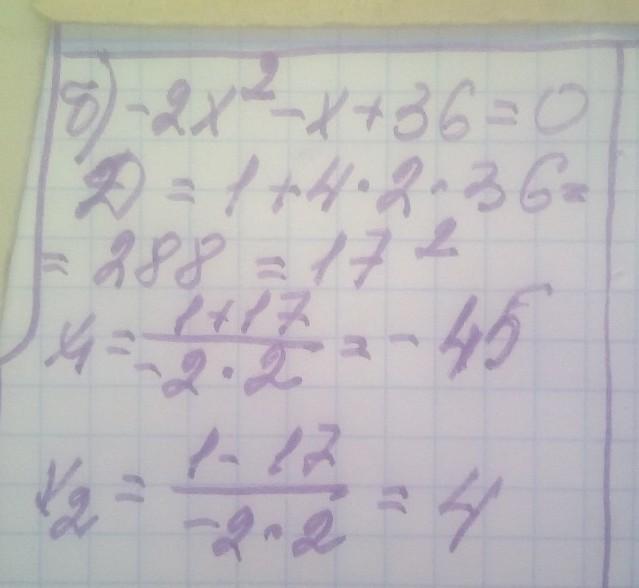 б) -2x² - x + 36 = 0
D = 1 + 4 · 2 · 36 =
= 288 = 17²
x₁ = (1 + 17)/(-2 · 2) = - 45
x₂ = (1 - 17)/(-2 · 2) = 4